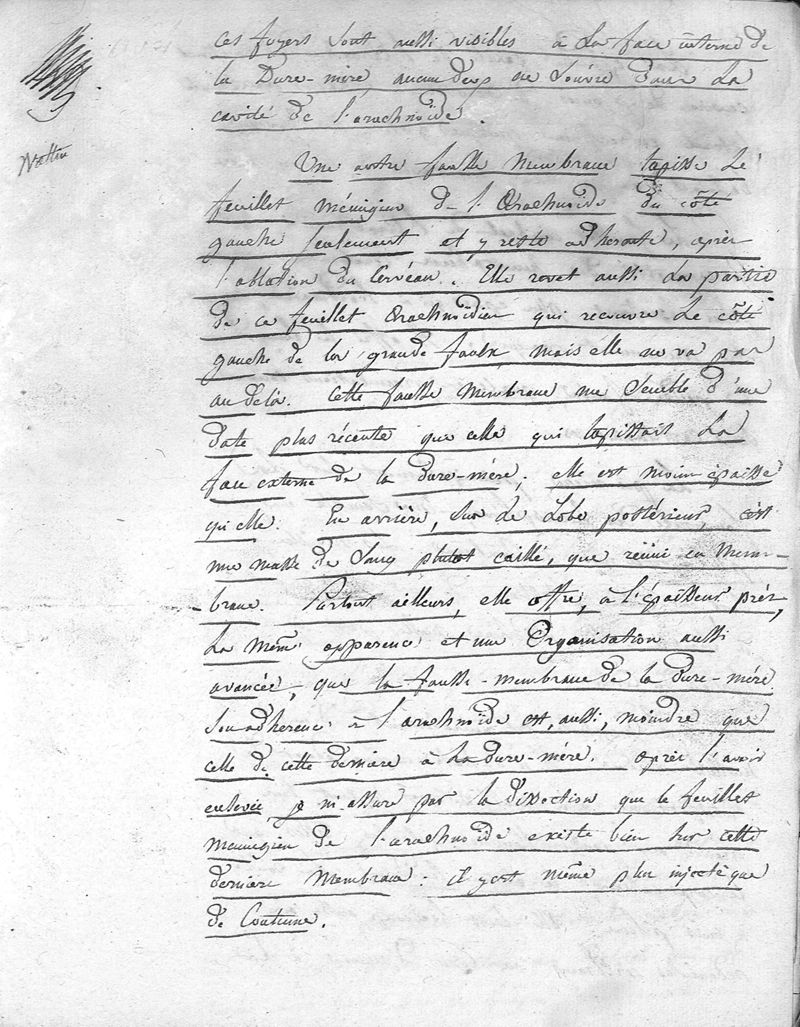 ces foyers sont aussi visibles à la face interne de
la Dure-mère, aucun d'eux ne s'ouvre dans la
cavité de l'arachnoïde.
Une autre fausse membrane tapisse le
feuillet méningien de l'Arachnoïde du côté
gauche seulement et y reste adhérente, après
l'ablation du Cerveau. Elle revet aussi la partie
de ce feuillet Arachnoïdien qui recouvre le côté
gauche de la grande faulx, mais elle ne va pas
au delà. Cette fausse membrane me semble d'une
date plus récente que celle qui tapissait la
face externe de la dure-mère; elle est moins épaisse
qu'elle. En arrière, sur le Lobe postérieur, c'est
une masse de sang plutot caillé, que réuni en Mem-
-brane. Partout ailleurs, elle offre, à l'épaisseur près,
la même apparence et une Organisation aussi
avancée, que la fausse-membrane de la Dure-mère
Son adherence à l'arachnoïde est, aussi, moindre que
celle de cette dernière à la Dure-mère. Après l'avoir
enlevée, je m'assure par la dissection que le feuillet
méningien de l'arachnoïde existe bien sur cette
dernière membrane: il y est même plus injecté que
de Coutume.